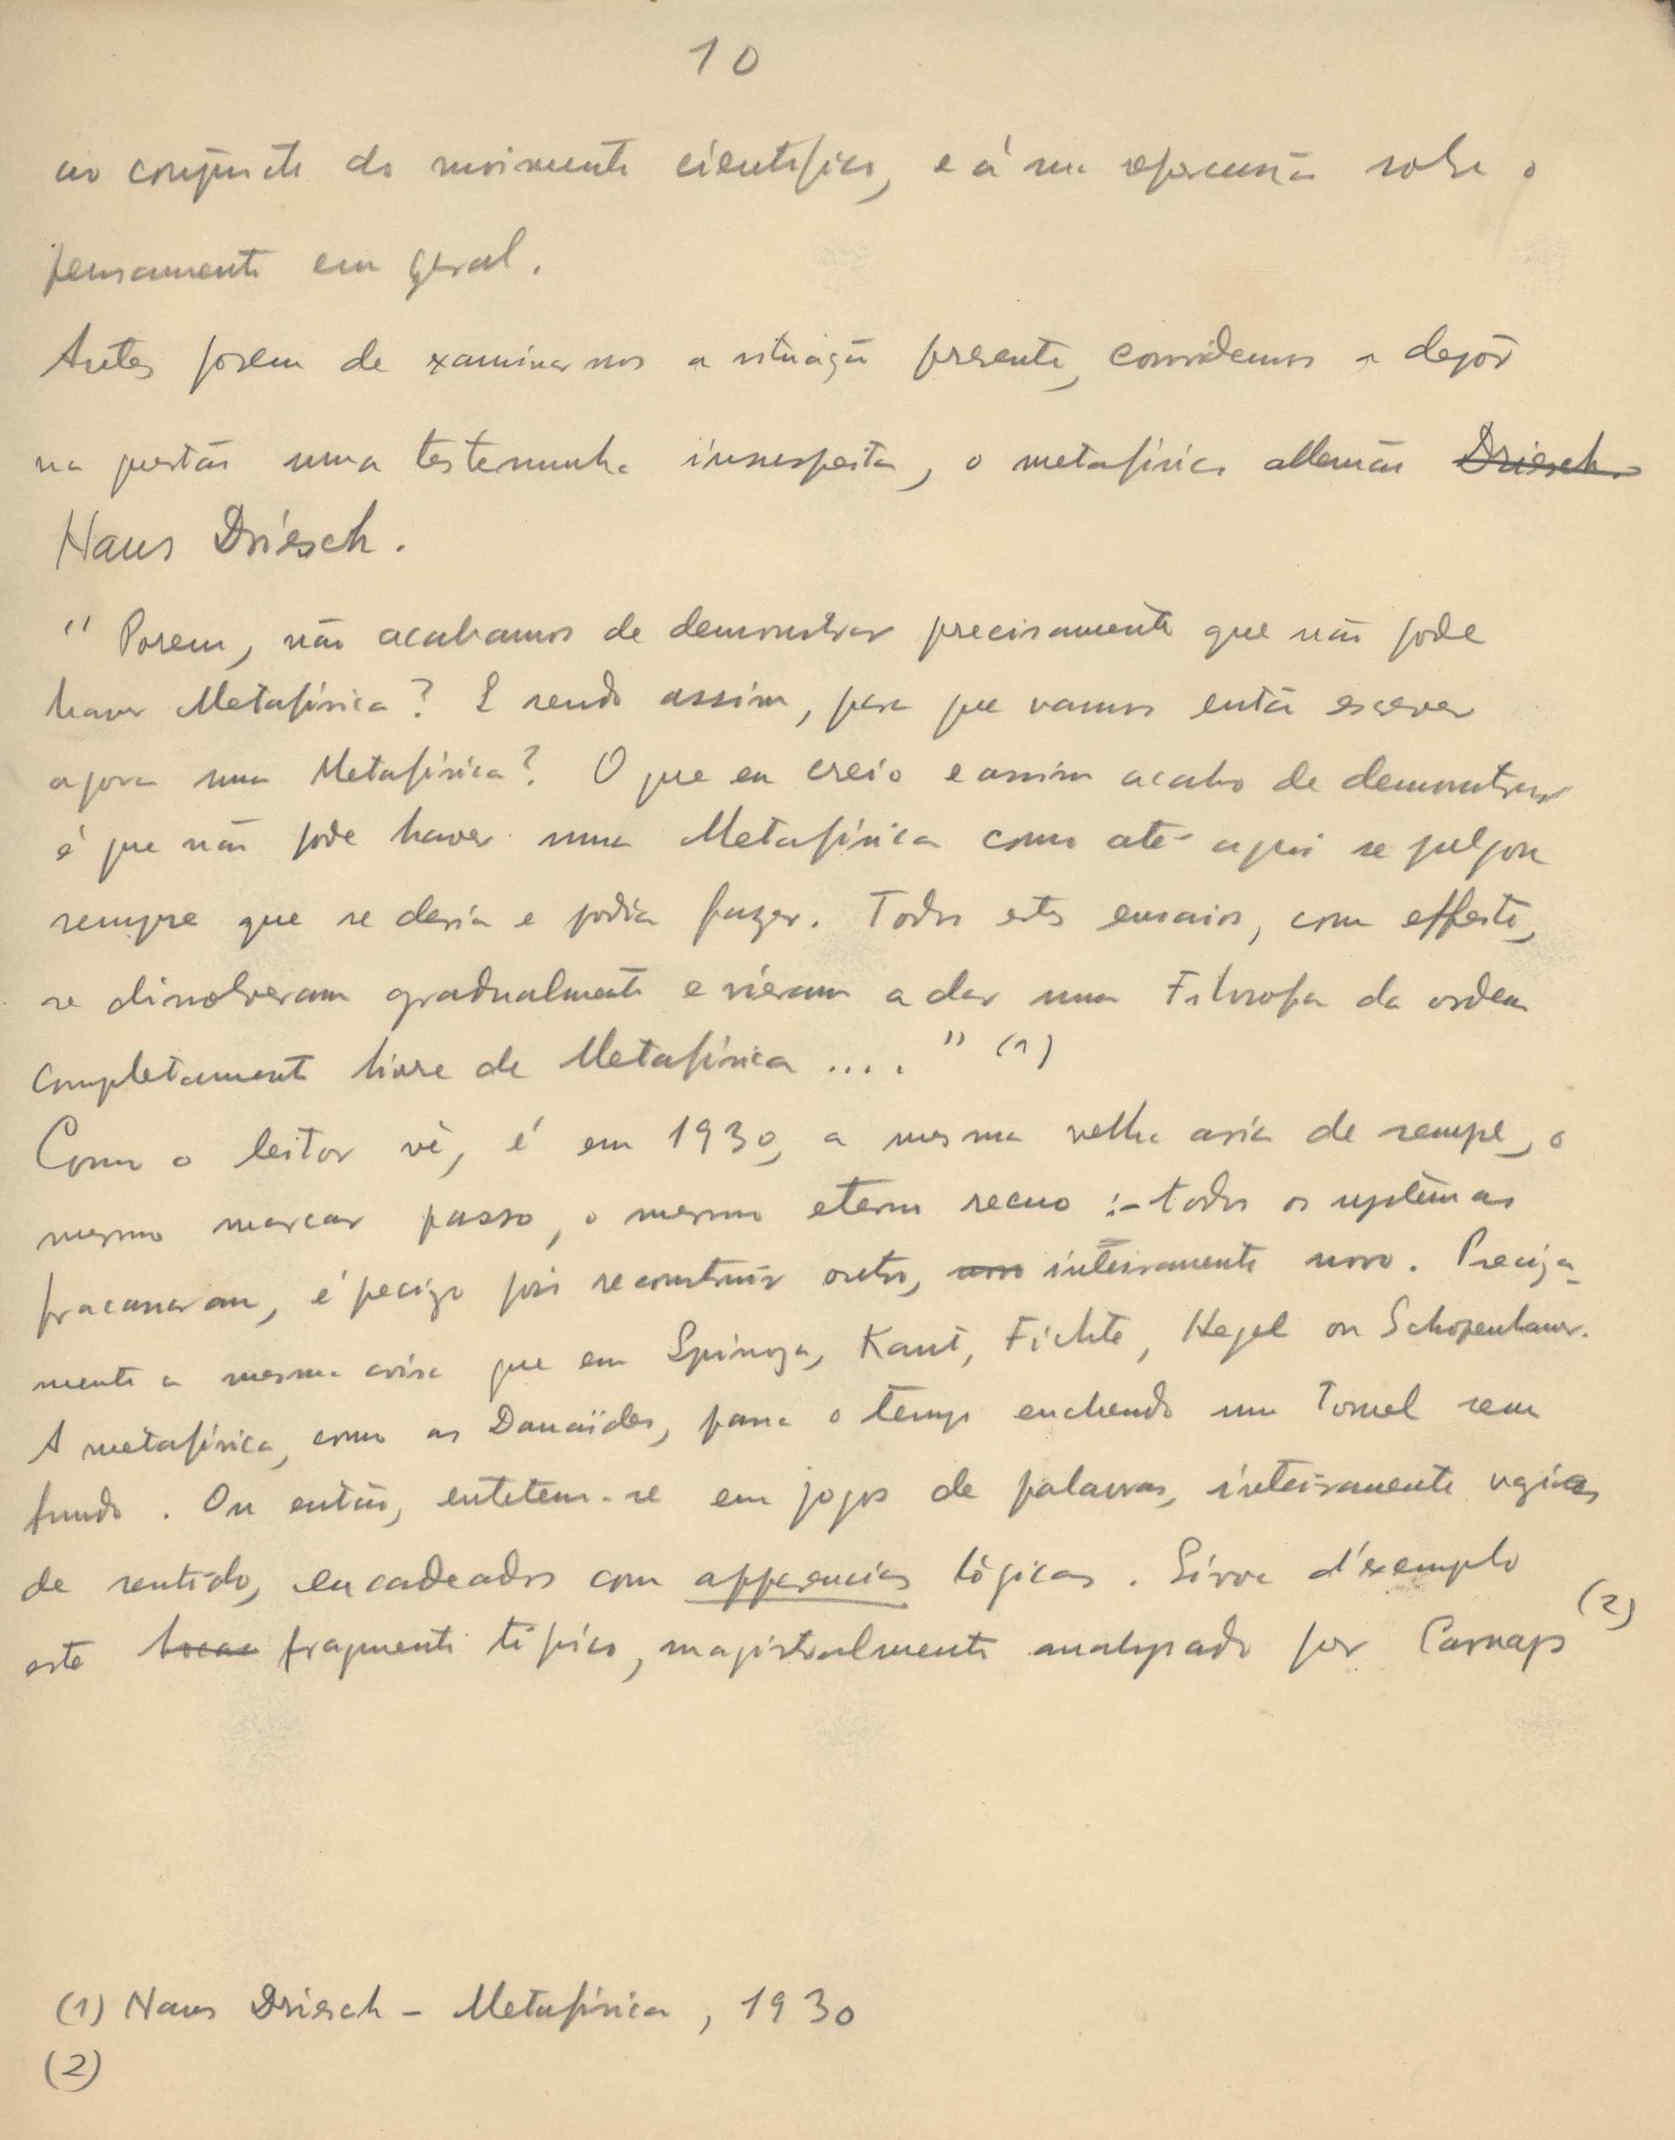 10
ao conjuncto do movimento cientifico, e á sua repercussão sobre o
pensamento em geral.
Antes porem de examinarmos a situação presente, convidemos a depôr
na questão uma testemunha insuspeita, o metafísico allemão Driesch
Hans Driesch.
" Porem, não acabamos de demonstrar precisamente que não pode
haver Metafísica? E sendo assim, para que vamos então escrever
agora uma Metafísica? O que eu creio e assim acabo de demonstrar
é que não pode haver uma Metafísica como até aqui se julgou
sempre que se devia e podia fazer. Todos estes ensaios, com effeito,
se dissolveram gradualmente e vieram a dar uma Filosofia da ordem
completamente livre de Metafísica .... " (1)
Como o leitor vê, é em 1930, a mesma velha aria de sempre, o
mesmo marcar passo, o mesmo eterno recuo :- todos os systêmas
fracassaram, é precizo pois reconstruir outro, novo inteiramente novo. Preciza-
mente a mesma coisa que em Spinoza, Kant, Fichte, Hegel ou Schopenhauer.
A metafísica, como as Danaïdes, passa o tempo enchendo um Tonel sem
fundo. Ou então, entetem-se em jogos de palavras, inteiramente vazios
de sentido, encadeados com apparencias lógicas. Sirva d'exemplo
este fragmento típico, magistralmente analysado por Carnap (2)
(1) Hans Driesch - Metafísica, 1930
(2)